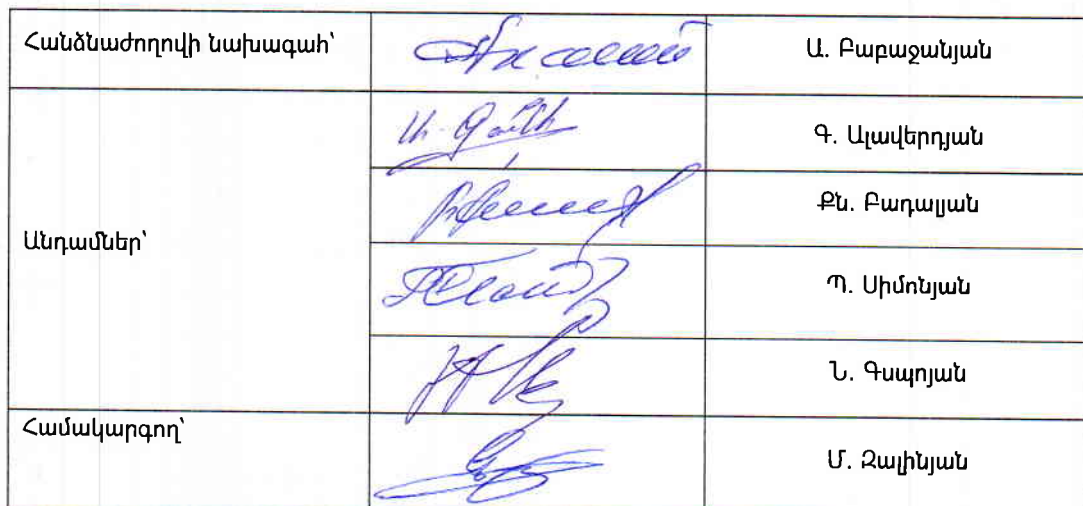 Հանձնաժողովի նախագահ՝
Ա. Բաբաջանյան
Գ. Ալավերդյան
Քն. Բադալյան
Անդամներ՝
Պ. Սիմոնյան
Ն. Գսպոյան
Համակարգող՝
Մ. Զալինյան